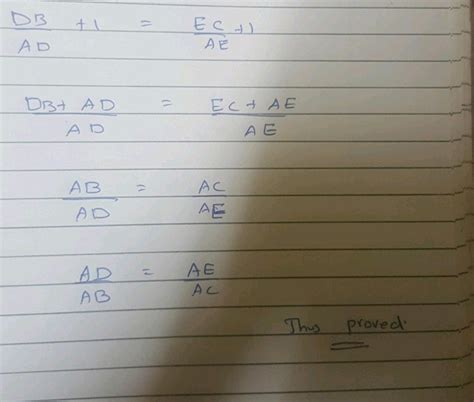 DB/AD +1 = EC/AE +1
DB+ AD/AD = EC+ AE/AE
AB/AD = AC/AE
AD/AB = AE/AC
Thus proved.